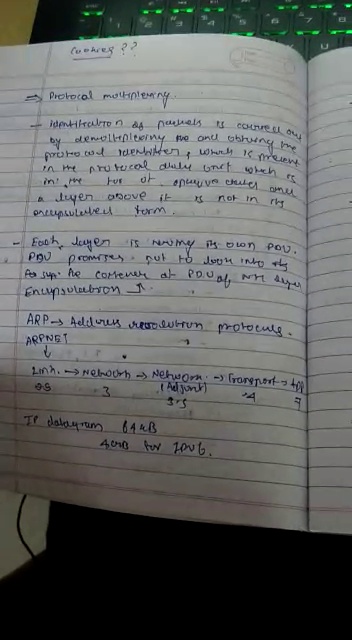 Cookies ??
⇒ Protocol multiplexing.
- Identification of packets is carried out
by demultiplexing and the
protocol identifier, which is present
in the protocol data unit which is
in the of and
a layer above it is not in its
encapsulated form.
- Each layer is having its own PDU.
PDU promises not to look into its
the content of PDU of Nth layer
Encapsulation
ARP → Address resolution protocols.
ARPNET
↓
Link → Network → Network → Transport →
3 (Adjunt) 4 7
3.5
IP datagram 64 kB
4 GB for IPv6.